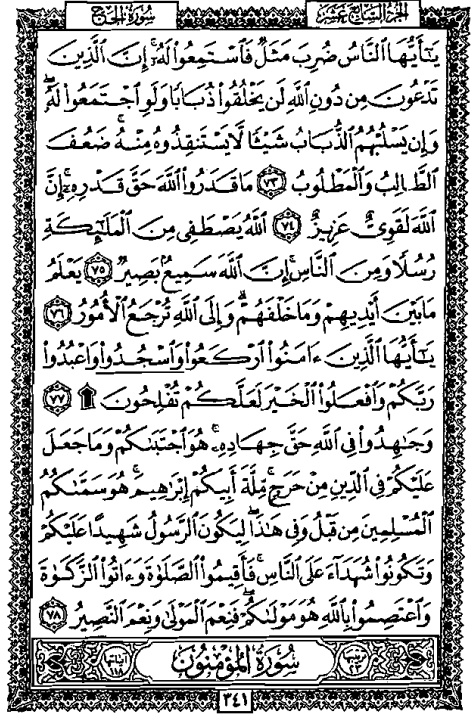 سُورَةُ الحَجّ
الجُزْءُ السَّابِعَ عَشَرَ
يَٰٓأَيُّهَا ٱلنَّاسُ ضُرِبَ مَثَلٞ فَٱسْتَمِعُوا۟ لَهُۥٓۚ إِنَّ ٱلَّذِينَ
تَدْعُونَ مِن دُونِ ٱللَّهِ لَن يَخْلُقُوا۟ ذُبَابٗا وَلَوِ ٱجْتَمَعُوا۟ لَهُۥۖ
وَإِن يَسْلُبْهُمُ ٱلذُّبَابُ شَيْـٔٗا لَّا يَسْتَنقِذُوهُ مِنْهُۚ ضَعُفَ
ٱلطَّالِبُ وَٱلْمَطْلُوبُ ٧٣ مَا قَدَرُوا۟ ٱللَّهَ حَقَّ قَدْرِهِۦٓۚ إِنَّ
ٱللَّهَ لَقَوِيٌّ عَزِيزٌ ٧٤ ٱللَّهُ يَصْطَفِى مِنَ ٱلْمَلَٰٓئِكَةِ
رُسُلٗا وَمِنَ ٱلنَّاسِۚ إِنَّ ٱللَّهَ سَمِيعُۢ بَصِيرٞ ٧٥ يَعْلَمُ
مَا بَيْنَ أَيْدِيهِمْ وَمَا خَلْفَهُمْۗ وَإِلَى ٱللَّهِ تُرْجَعُ ٱلْأُمُورُ ٧٦
يَٰٓأَيُّهَا ٱلَّذِينَ ءَامَنُوا۟ ٱرْكَعُوا۟ وَٱسْجُدُوا۟ وَٱعْبُدُوا۟
رَبَّكُمْ وَٱفْعَلُوا۟ ٱلْخَيْرَ لَعَلَّكُمْ تُفْلِحُونَ ۩ ٧٧
وَجَٰهِدُوا۟ فِى ٱللَّهِ حَقَّ جِهَادِهِۦۚ هُوَ ٱجْتَبَىٰكُمْ وَمَا جَعَلَ
عَلَيْكُمْ فِى ٱلدِّينِ مِنْ حَرَجٖۚ مِّلَّةَ أَبِيكُمْ إِبْرَٰهِيمَۚ هُوَ سَمَّىٰكُمُ
ٱلْمُسْلِمِينَ مِن قَبْلُ وَفِى هَٰذَا لِيَكُونَ ٱلرَّسُولُ شَهِيدًا عَلَيْكُمْ
وَتَكُونُوا۟ شُهَدَآءَ عَلَى ٱلنَّاسِۚ فَأَقِيمُوا۟ ٱلصَّلَوٰةَ وَءَاتُوا۟ ٱلزَّكَوٰةَ
وَٱعْتَصِمُوا۟ بِٱللَّهِ هُوَ مَوْلَىٰكُمْۖ فَنِعْمَ ٱلْمَوْلَىٰ وَنِعْمَ ٱلنَّصِيرُ ٧٨
سُورَةُ المُؤْمِنُونَ
٣٤١